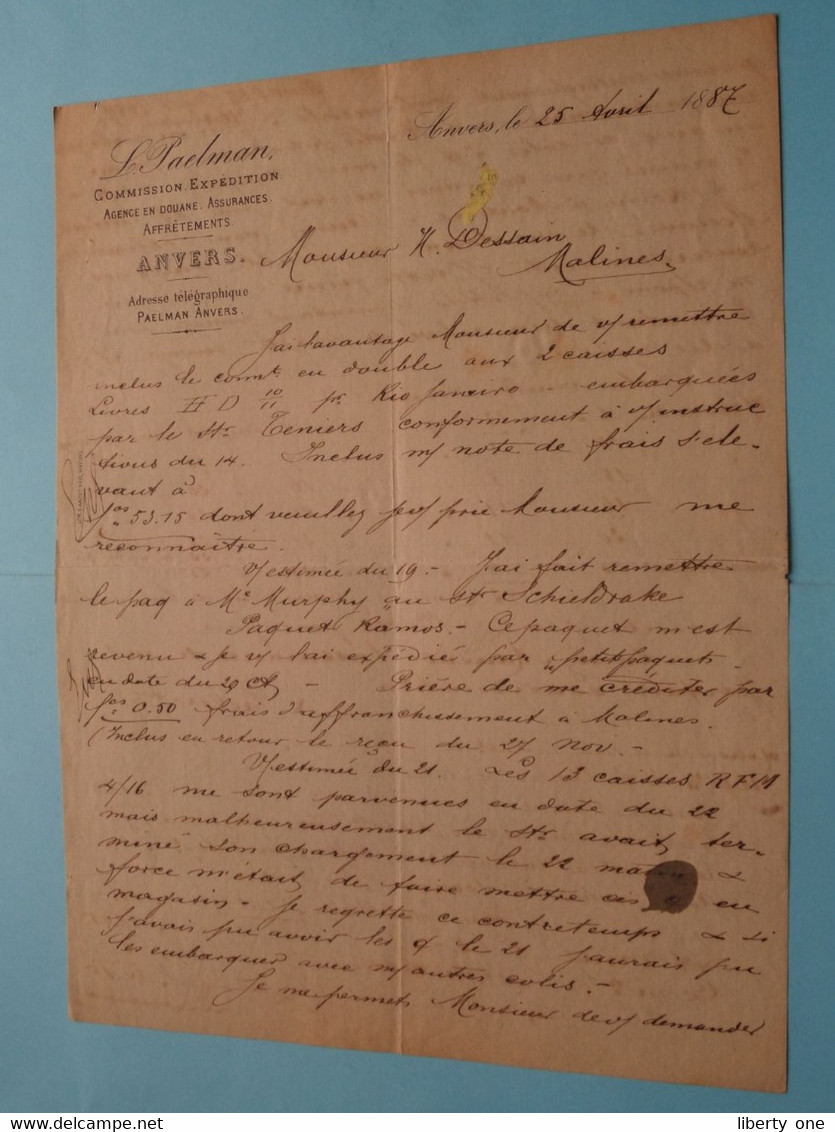 L. Paelman,
COMMISSION. EXPÉDITION.
AGENCE EN DOUANE. ASSURANCES.
AFFRÉTEMENTS.
ANVERS.
Adresse télégraphique
PAELMAN ANVERS.
Anvers, le 25 Avril 1887
Monsieur H. Dessain
Malines.
J'ai l'avantage Monsieur de v/ remettre
inclus le connt. en double aux 2 caisses
Livres HD 10/11 pr Rio Janeiro - embarquées
par le str. Teniers conformement à v/ instruc
tions du 14. Inclus m/ note de frais s'ele-
vant à
frs 53.15 dont veuillez je v/ prie Monsieur me
reconnaître.
V/ estimée du 19.- J'ai fait remettre
le paq à Mc Murphy au str Schieldrake
Paquet Ramos.- Ce paquet m'est
revenu & je v/ l'ai expédié par "petit paquet"
en date du 20 Ct - Prière de me créditer par
frs 0.50 frais d'affranchissement à Malines.
(Inclus en retour le reçu du 27 Nov.-
V/ estimée du 21. Les 13 caisses RFM
4/16 me sont parvenues en date du 22
mais malheureusement le str avait ter-
miné son chargement le 22 matin &
force m'était de faire mettre ces en
magasin- Je regrette ce contretemps & si
j'avais pu avoir les le 21 j'aurais pu
les embarquer avec m/ autres colis.-
Je me permets Monsieur de v/ demander
liberty one